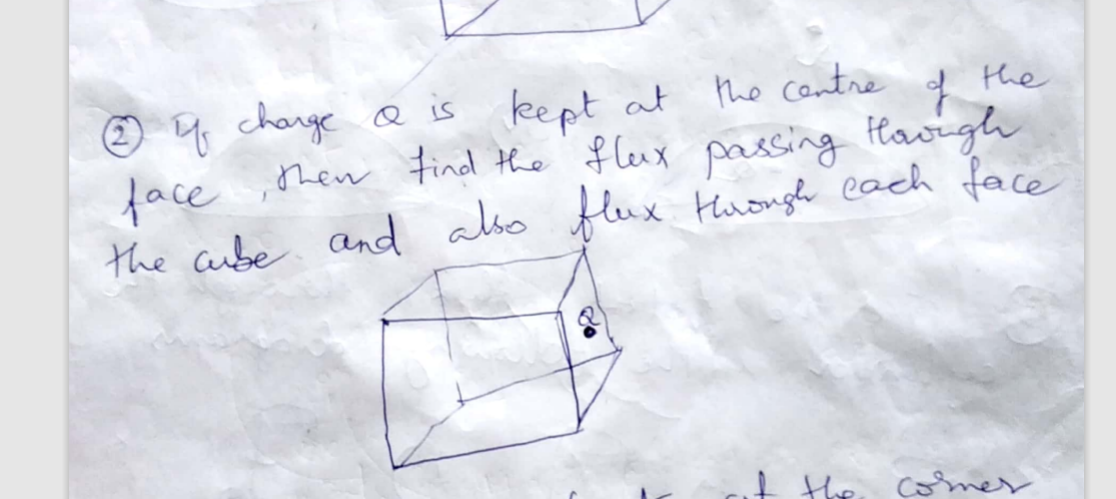 ② If charge Q is kept at the centre of the
face, then find the flux passing through
the cube and also flux through each face
Q
at the corner